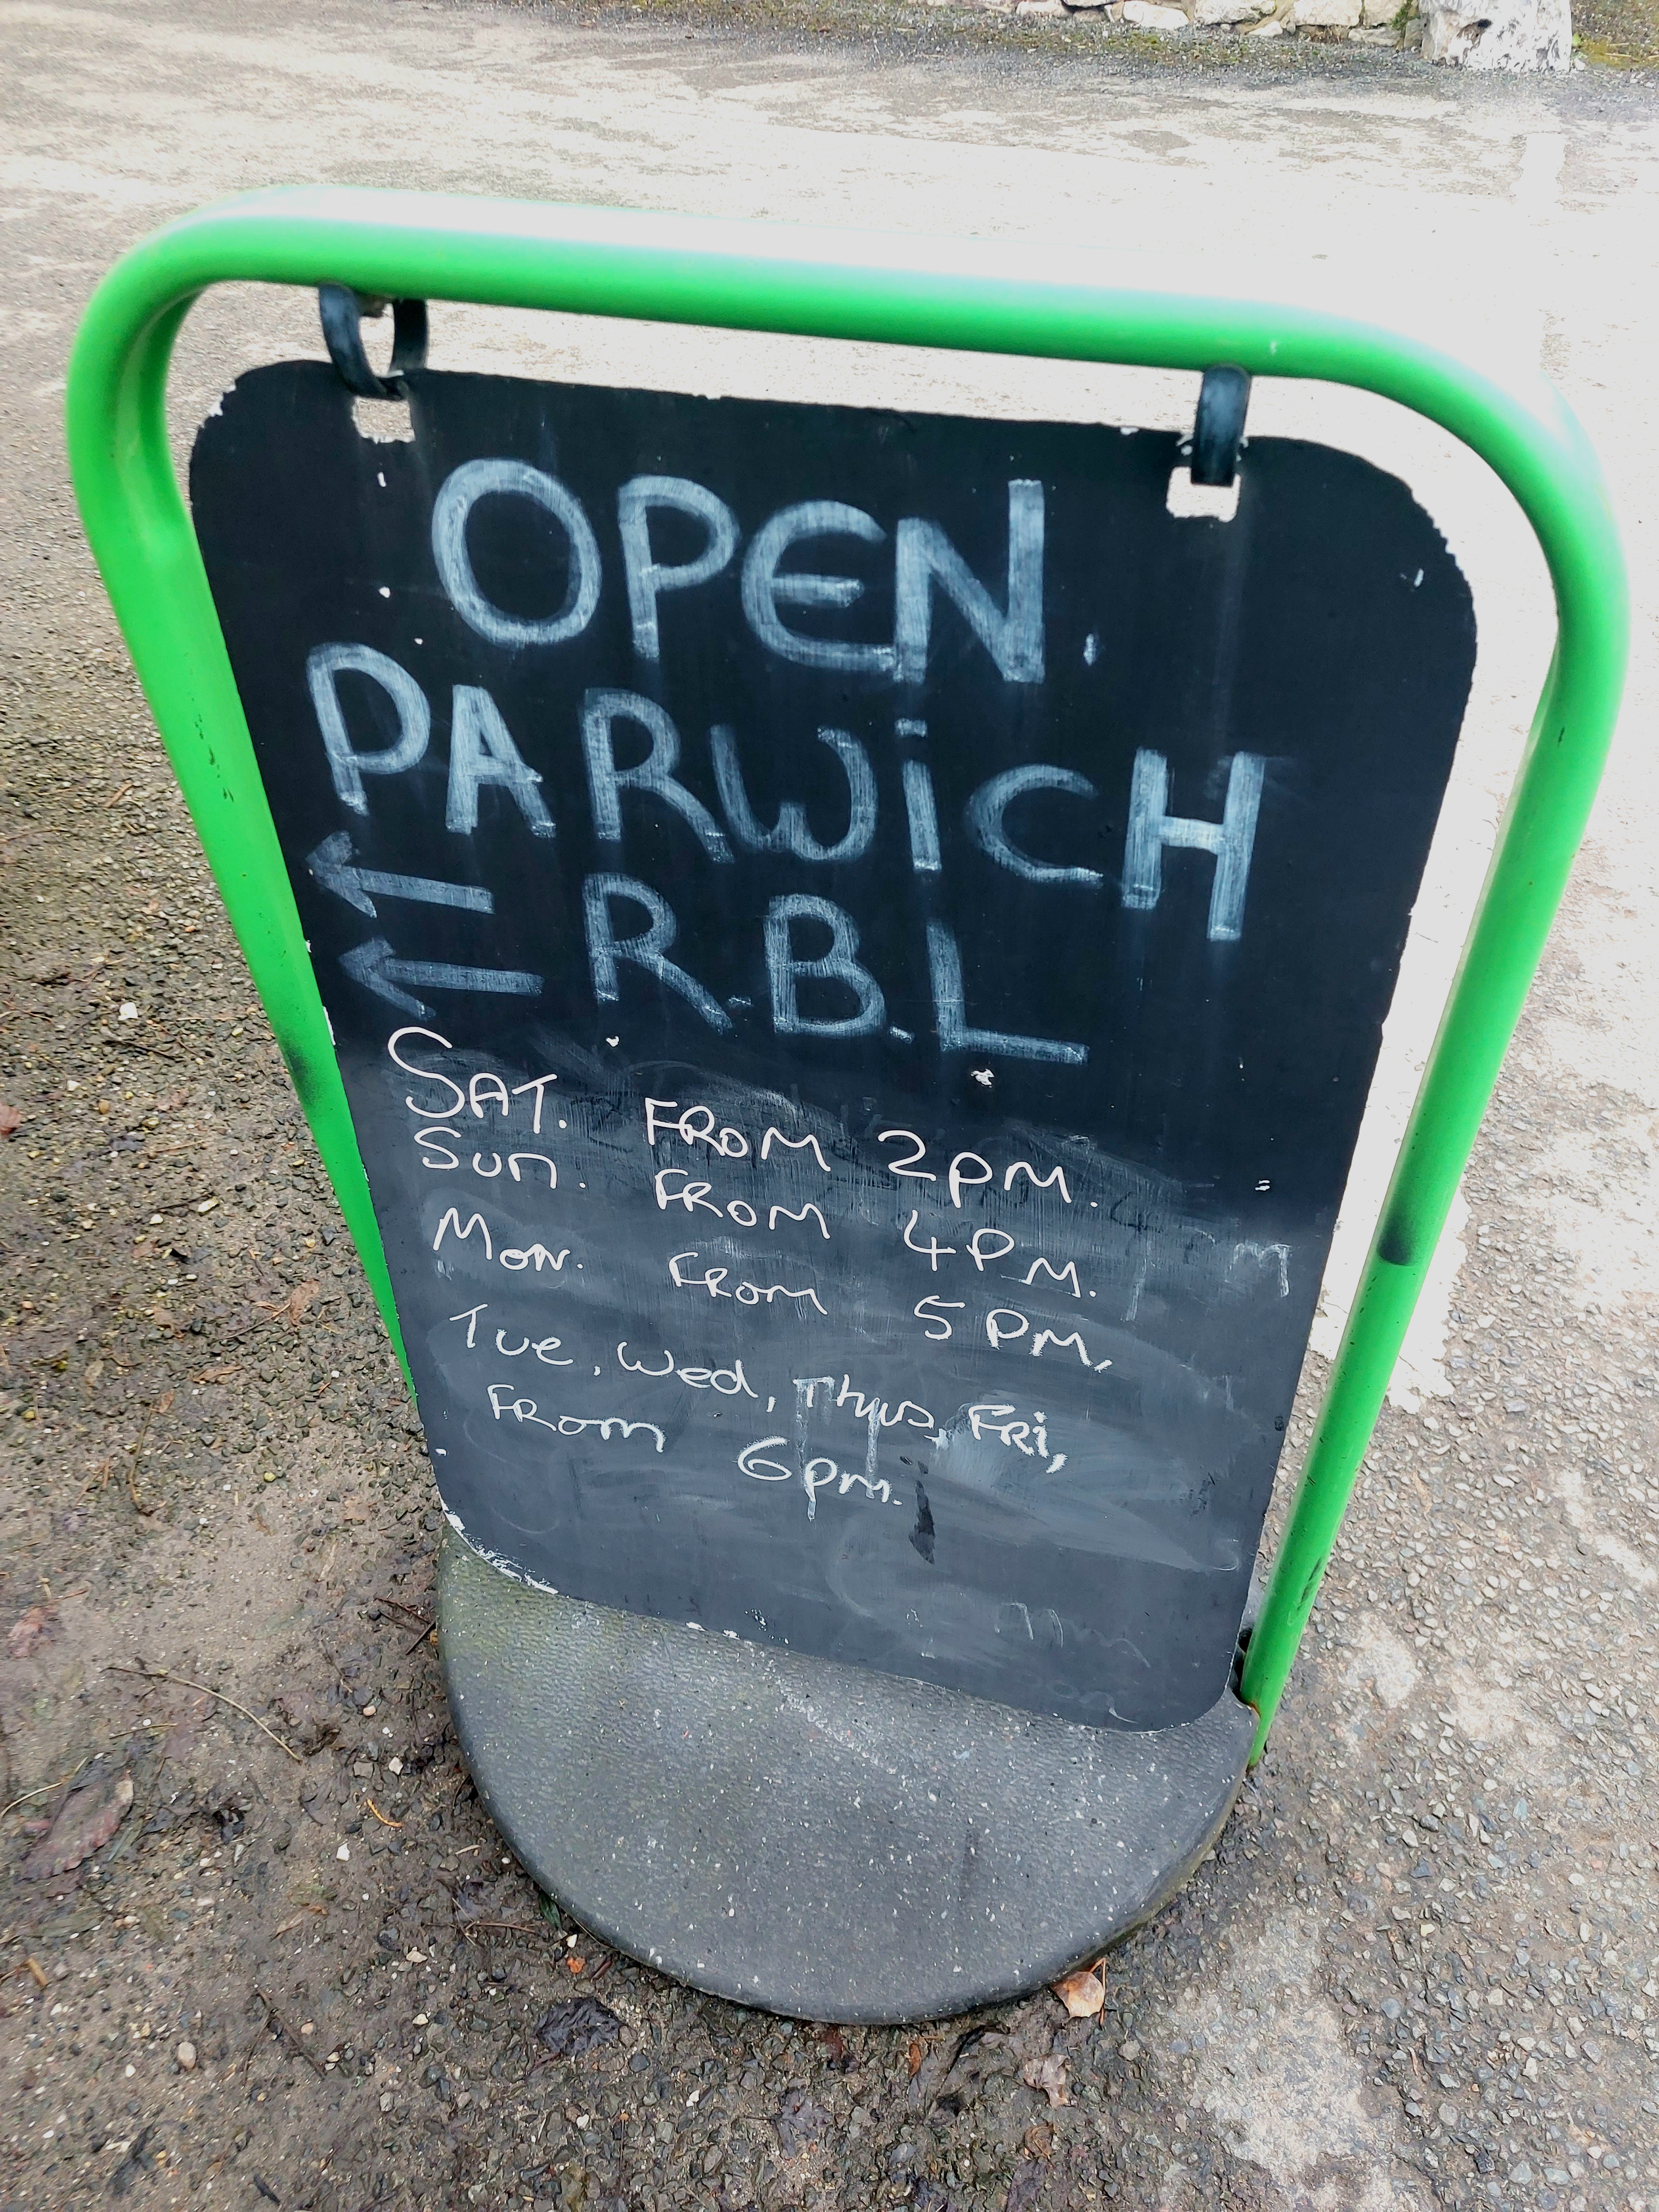 OPEN.
PARWiCH
← R.B.L
←
SAT. FROM 2PM.
Sun. FROM 4PM.
Mon. FROM 5PM,
Tue, Wed, Thurs, FRi,
FROM 6pm.